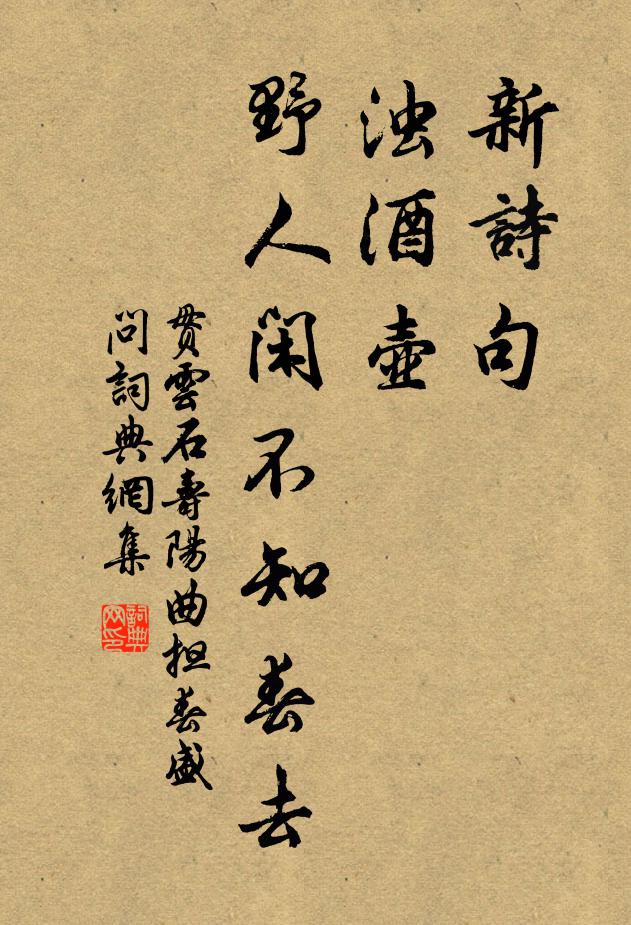 新詩句
浊酒壺
野人閑不知春去
贯雲石壽陽曲担春盛
問詞典網集
詞典
网印